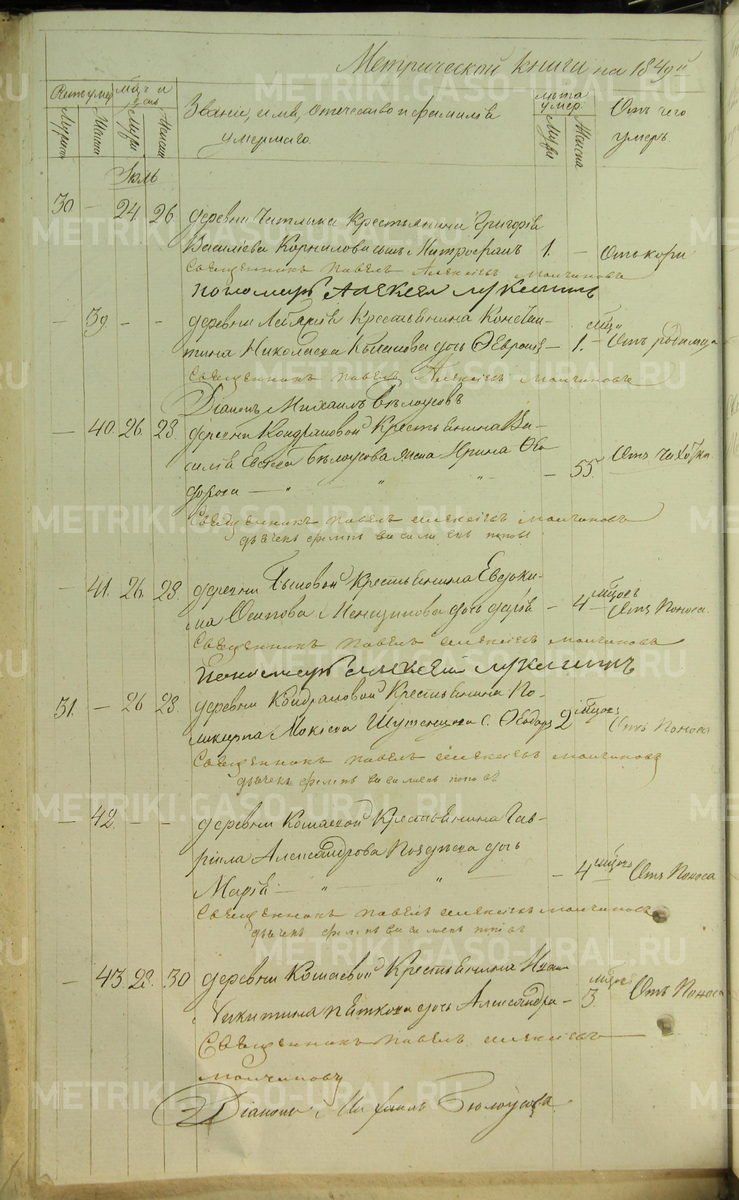 Метрической книги на 1849й
Счетъ умер. мѣсяцъ и день Званіе, имя, отечество и фамилія умершаго. лѣта умер. Отъ чего умеръ
Муж. Женс. Муж. Женс. Муж. Женск.
Іюль
30 — 24 26 деревни Крестьянина Григорія
Васильева Корнилова сынъ Митрофанъ 1. — Отъ кори
Священникъ Павелъ Алексѣевъ Молчановъ
пономарь Алексей Лукинъ
— 39 — — деревни Крестьянина Констан-
тина Николаева дочь Февронія — 1. Отъ родимца
Священникъ Павелъ Алексѣевъ Молчановъ
Діаконъ Михаилъ Бѣлоусовъ
— 40. 26. 28. деревни Кондраловой Крестьянина Ва-
силія Бѣлоусова жена Ирина Ѳео-
дорова — " " " — 55. Отъ Чахотки
Священникъ Павелъ Алексѣевъ Молчановъ
дьячекъ Филипъ Василиевъ поповъ
— 41. 26. 28. деревни Крестьянина Евдоки-
ма Осипова Меньщикова дочь — 4 мѣсяцевъ Отъ Поноса.
Священникъ Павелъ Алексѣевъ Молчановъ
Пономарь Алексей Лукинъ
31. — 26 28. деревни Кондраловой Крестьянина По-
ликарпа Мокѣева с. Ѳеодоръ 2 мѣсяц. Отъ Поноса
Священникъ Павелъ Алексѣевъ Молчановъ
дьячекъ Филипъ Василиевъ поповъ
— 42. — — деревни Кошаевой Крестьянина Гав-
ріила Александрова дочь
Марія — " " — 4 мѣсяцевъ Отъ Поноса
Священникъ Павелъ Алексѣевъ Молчановъ
дьячекъ Филипъ Василиевъ поповъ
— 43. 28. 30 деревни Кошаевой Крестьянина
Никитина Пяткова дочь Александра — 3. мѣсяц. Отъ Поноса
Священникъ Павелъ Алексѣевъ
Молчановъ
Діаконъ Михаилъ Бѣлоусовъ
METRIKI.GASO-URAL.RU